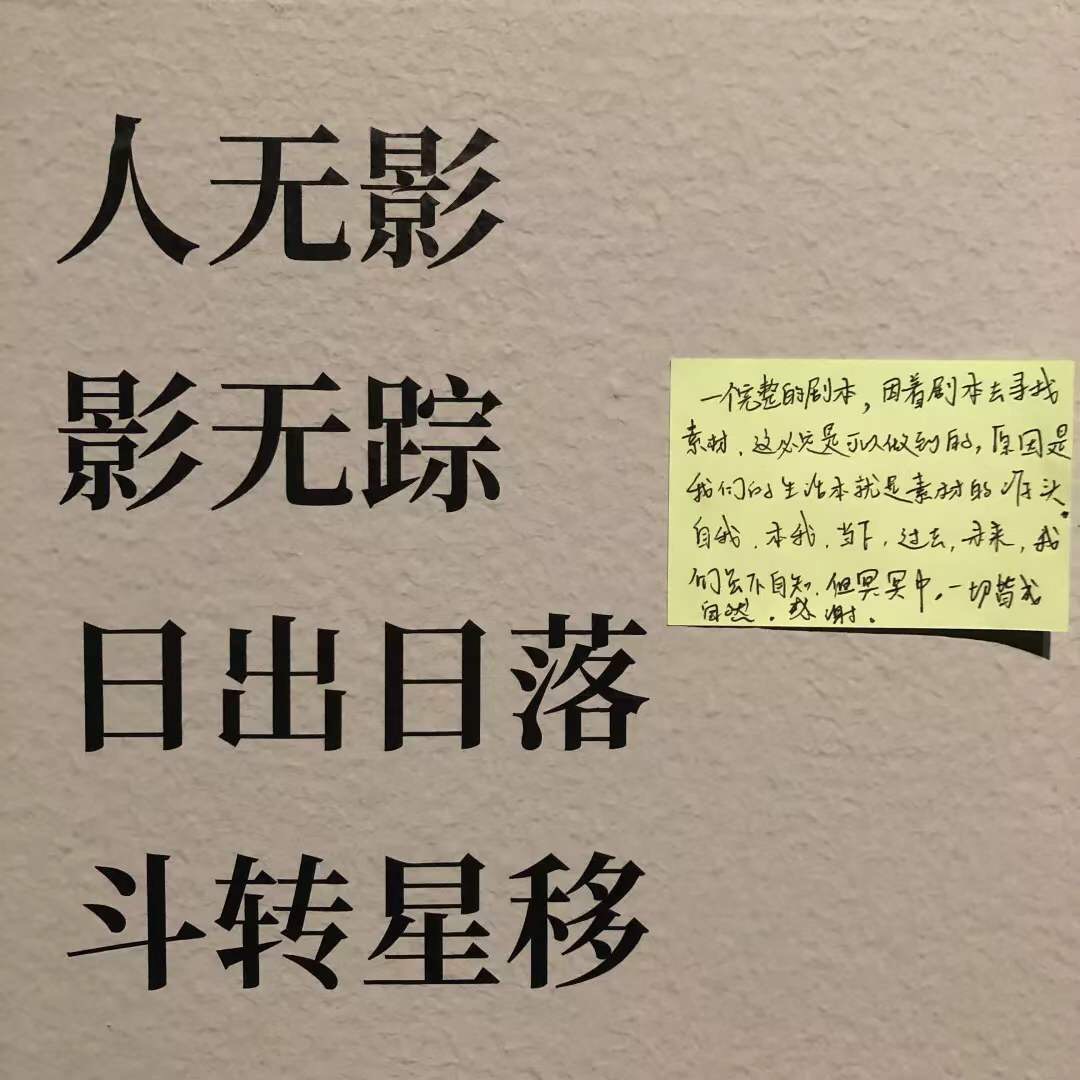 人无影
影无踪
日出日落
斗转星移
一个完整的剧本，因着剧本去寻找
素材，这必定是可以做到的，原因是
我们的生活本就是素材的源头。
自我，本我，当下，过去，未来，我
们虽不自知，但冥冥中，一切皆成
自然。感谢。